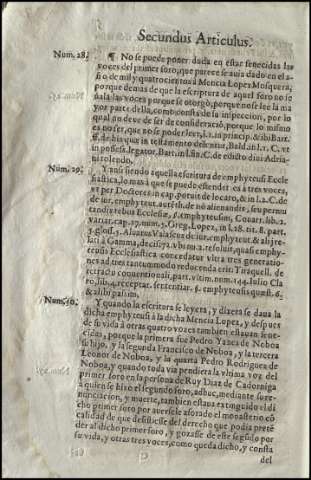 Secundus Articulus.
Num. 28.
¶ No se puede poner duda en estar fenecidas las
voces del primer foro, que parece se auia dado en el a-
ño de mil y quatrocientos à Mencia Lopez Mosquera,
porque demas de que la escriptura de aquel foro no se
ñala las voces porque se otorgò, porque no se lee la ma
yor parte della, como consta de la inspeccion, por lo
qual no deue de ser de consideració, porque lo mismo
es no ser, que no se poder leer, l. 1. in princip. & ibi Bart.
ff. de his quæ in testamento delentur, Bald. in l. 1. C. ut
in possess. legator. Bart. in l. fin. C. de edicto diui Adria-
ni tolendo.
Nũm. 29.
¶ Y ansi siendo aquella escritura de emphyteusi Ecle
siastica, lo mas à que se puede estender es à tres voces,
ut per Doctores in cap. potuit de locato, & in l. 2. C. de
de iur. emphyteut. auth. de non alienandis, seu permu
tandis rebus Ecclesiæ, §. emphyteusim, Couar. lib. 2.
variar. cap. 17. num. 5. Greg. Lopez, in l. 28. tit. 8. part.
3. glos. 5. Aluarus Valascus de iur. emphyteut. & ali j re-
lati à Gamma, decis 72. vbi nu. 2. resoluit, quasi emphy-
teusis Ecclesiastica concedatur vltra tres generatio-
nes ad tres tantummodo reducenda erit: Tiraquell. de
retractu conuentionali, part. vltim. nem. 144. Iulio Cla
ro, lib. 4. receptar. sententiar. §. emphyteusis quæst. 6.
& alibi passim.
Num. 30.
Y quando la escritura se leyera, y dixera se daua la
dicha emphyteusi à la dicha Mencia Lopez, y despues
de su vida à otras quatro voces tambien estauan fene-
cidas, porque la primera fue Pedro Yanez de Noboa
su hijo, y la segunda Francisco de Noboa, y la tercera
Leonor de Noboa, y la quarta Pedro Rodriguez de
Noboa, y quando toda via pendiera la vltima voz del
primer foro en la persona de Ruy Diaz de Cadorniga
à quien se hizo el segundo foro, adhuc, mediante su re-
nunciacion, y muerte, tambien estaua extinguido el di
cho primer foro por auersele aforado el monasterio cõ
calidad de que desistiesse del derecho que podia preté
der al dicho primer foro, y gozasse de este segũdo por
su vida, y otras tres voces, como queda dicho, y consta
del